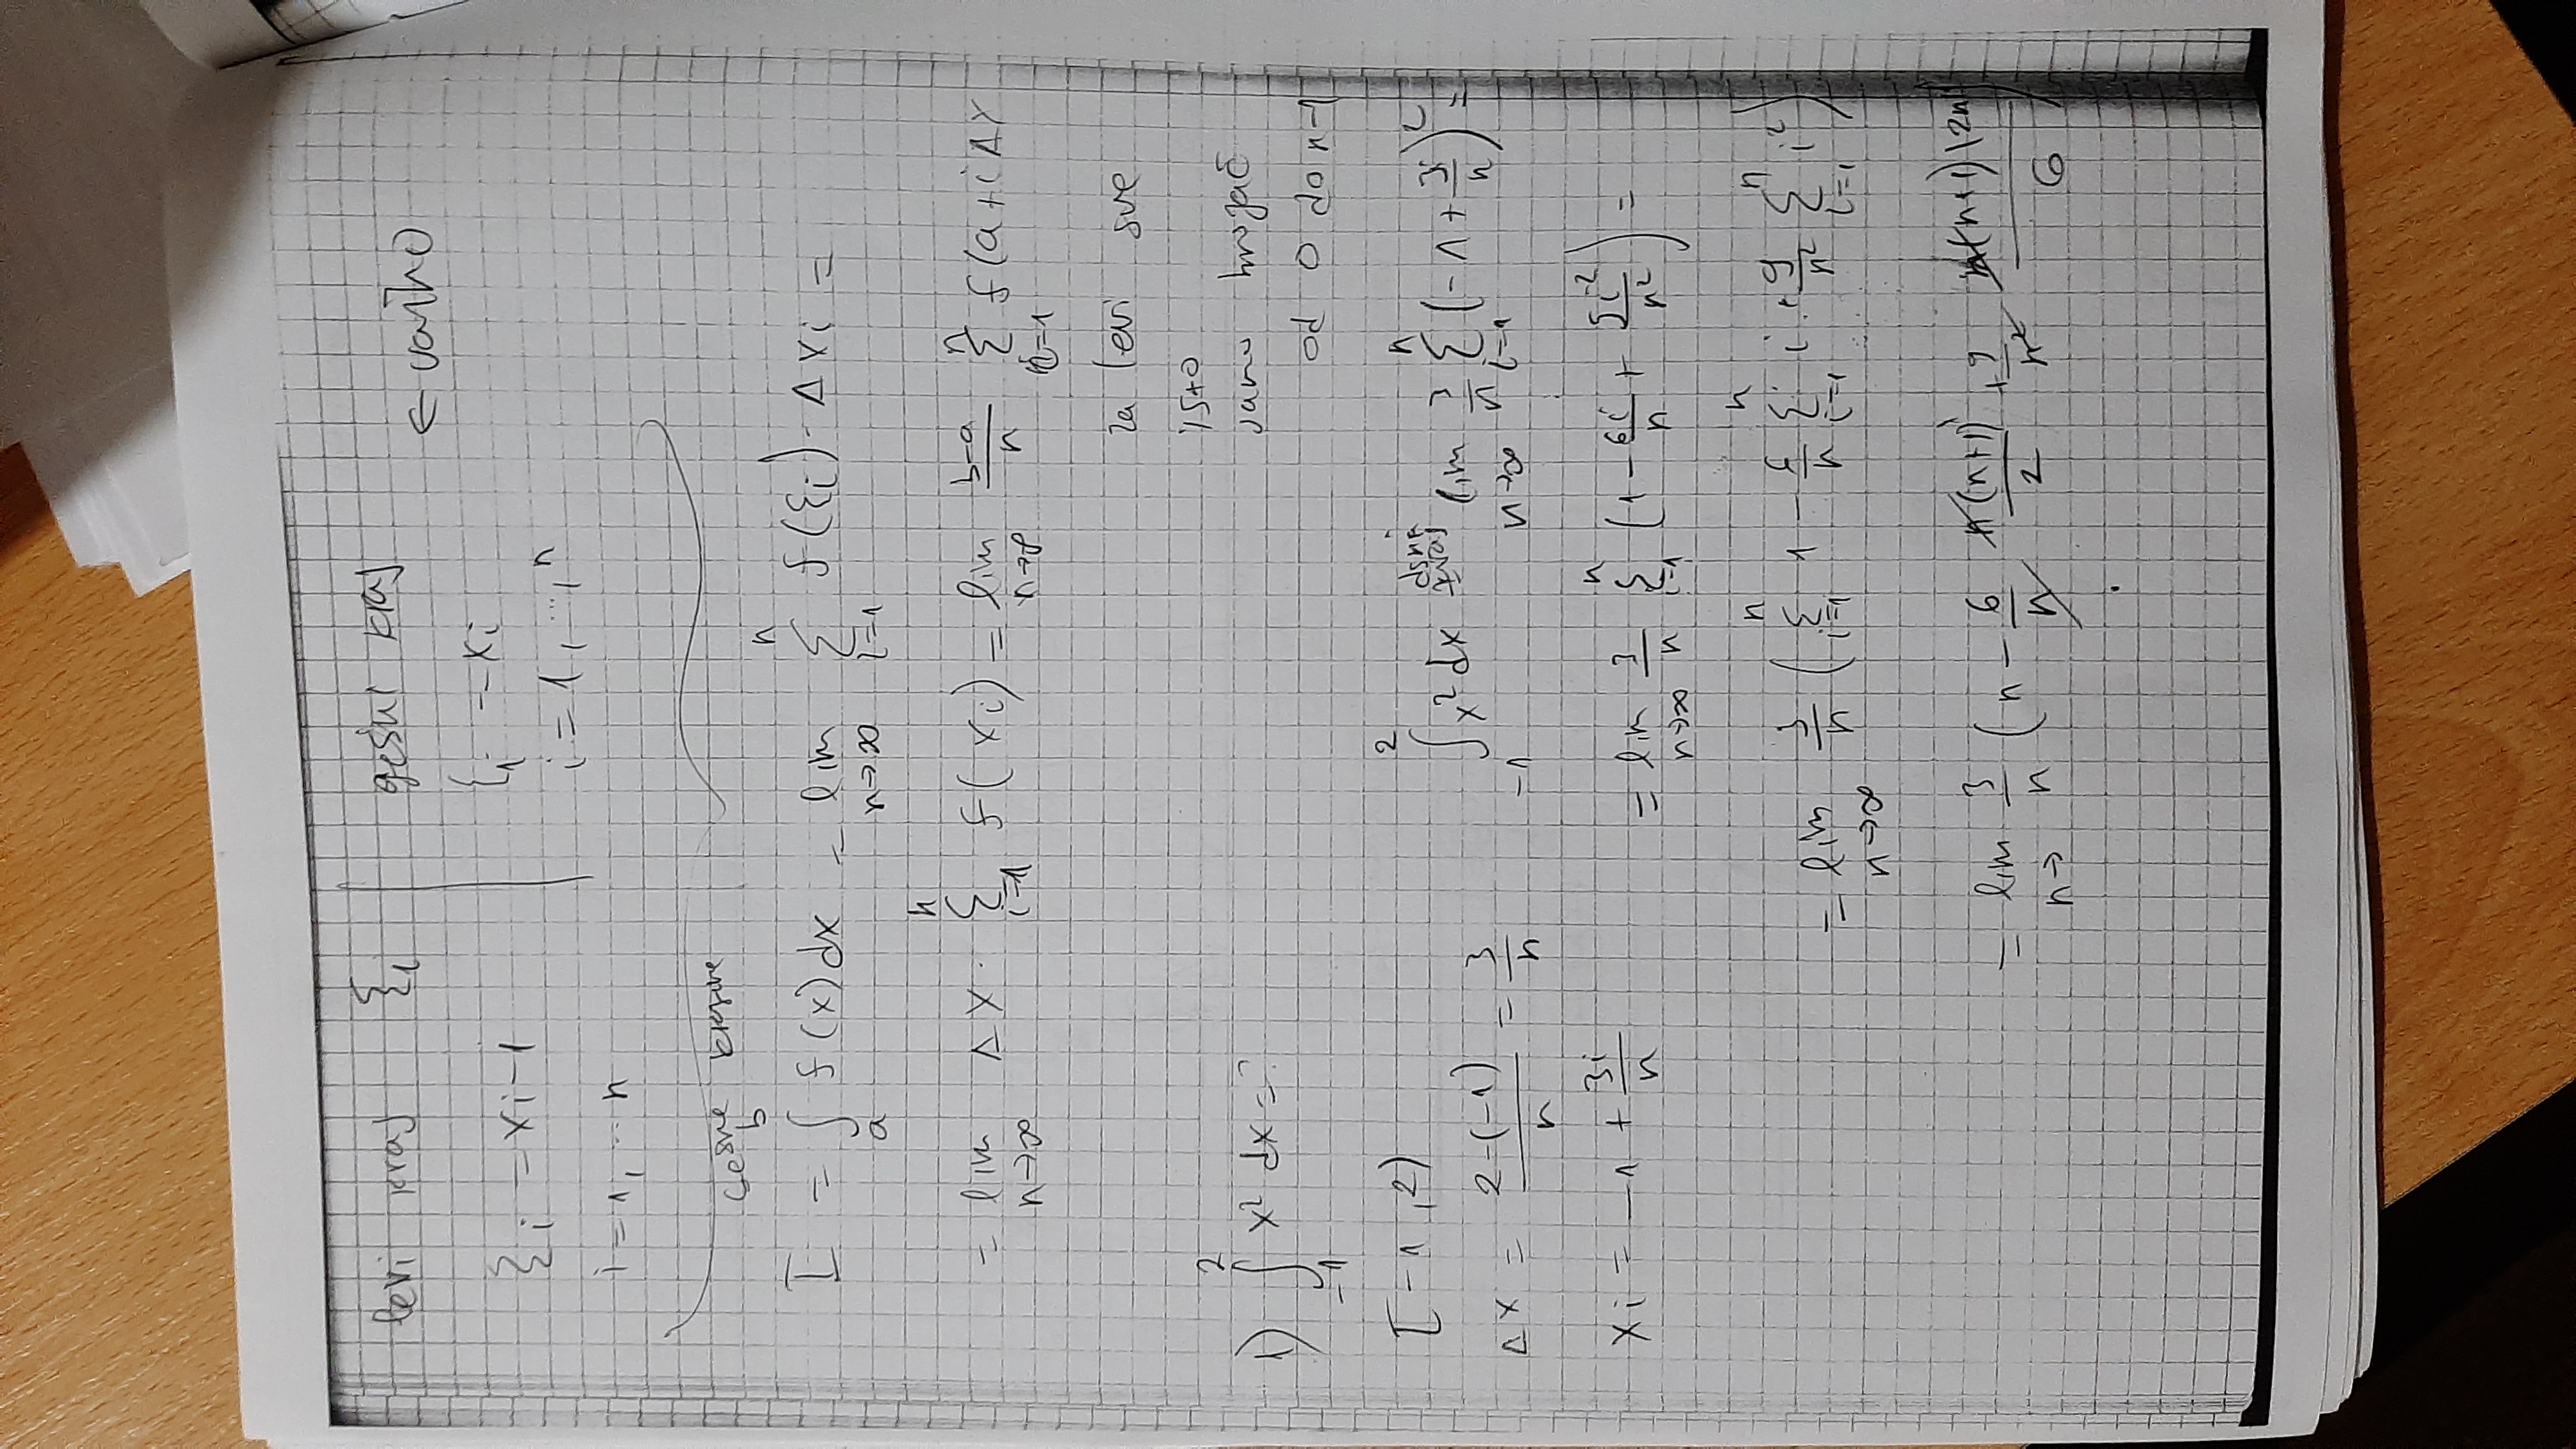 levi kraj ξi | desni kraj ← važno
ξi = xi-1 | ξi = xi
i = 1, ... n | i = 1, ..., n
desne
I = ∫_a^b f(x)dx = lim_{n→∞} Σ_{i=1}^n f(ξi)·Δxi =
= lim_{n→∞} Δx · Σ_{i=1}^n f(xi) = lim_{n→∞} (b-a)/n Σ_{i=1}^n f(a+iΔx
za levi sve
isto
samo brojač
od 0 do n-1
1) ∫_{-1}^2 x² dx = ?
[-1,2)
Δx = (2-(-1))/n = 3/n
xi = -1 + 3i/n
∫_{-1}^2 x² dx =^{desni kraj} lim_{n→∞} 3/n Σ_{i=1}^n (-1 + 3i/n)² =
= lim_{n→∞} 3/n Σ_{i=1}^n (1 - 6i/n + 9i²/n²) =
= lim_{n→∞} 3/n (Σ_{i=1}^n 1 - 6/n Σ_{i=1}^n i + 9/n² Σ_{i=1}^n i²)
= lim_{n→} 3/n (n - 6/n n(n+1)/2 + 9/n² n(n+1)(2n)/6